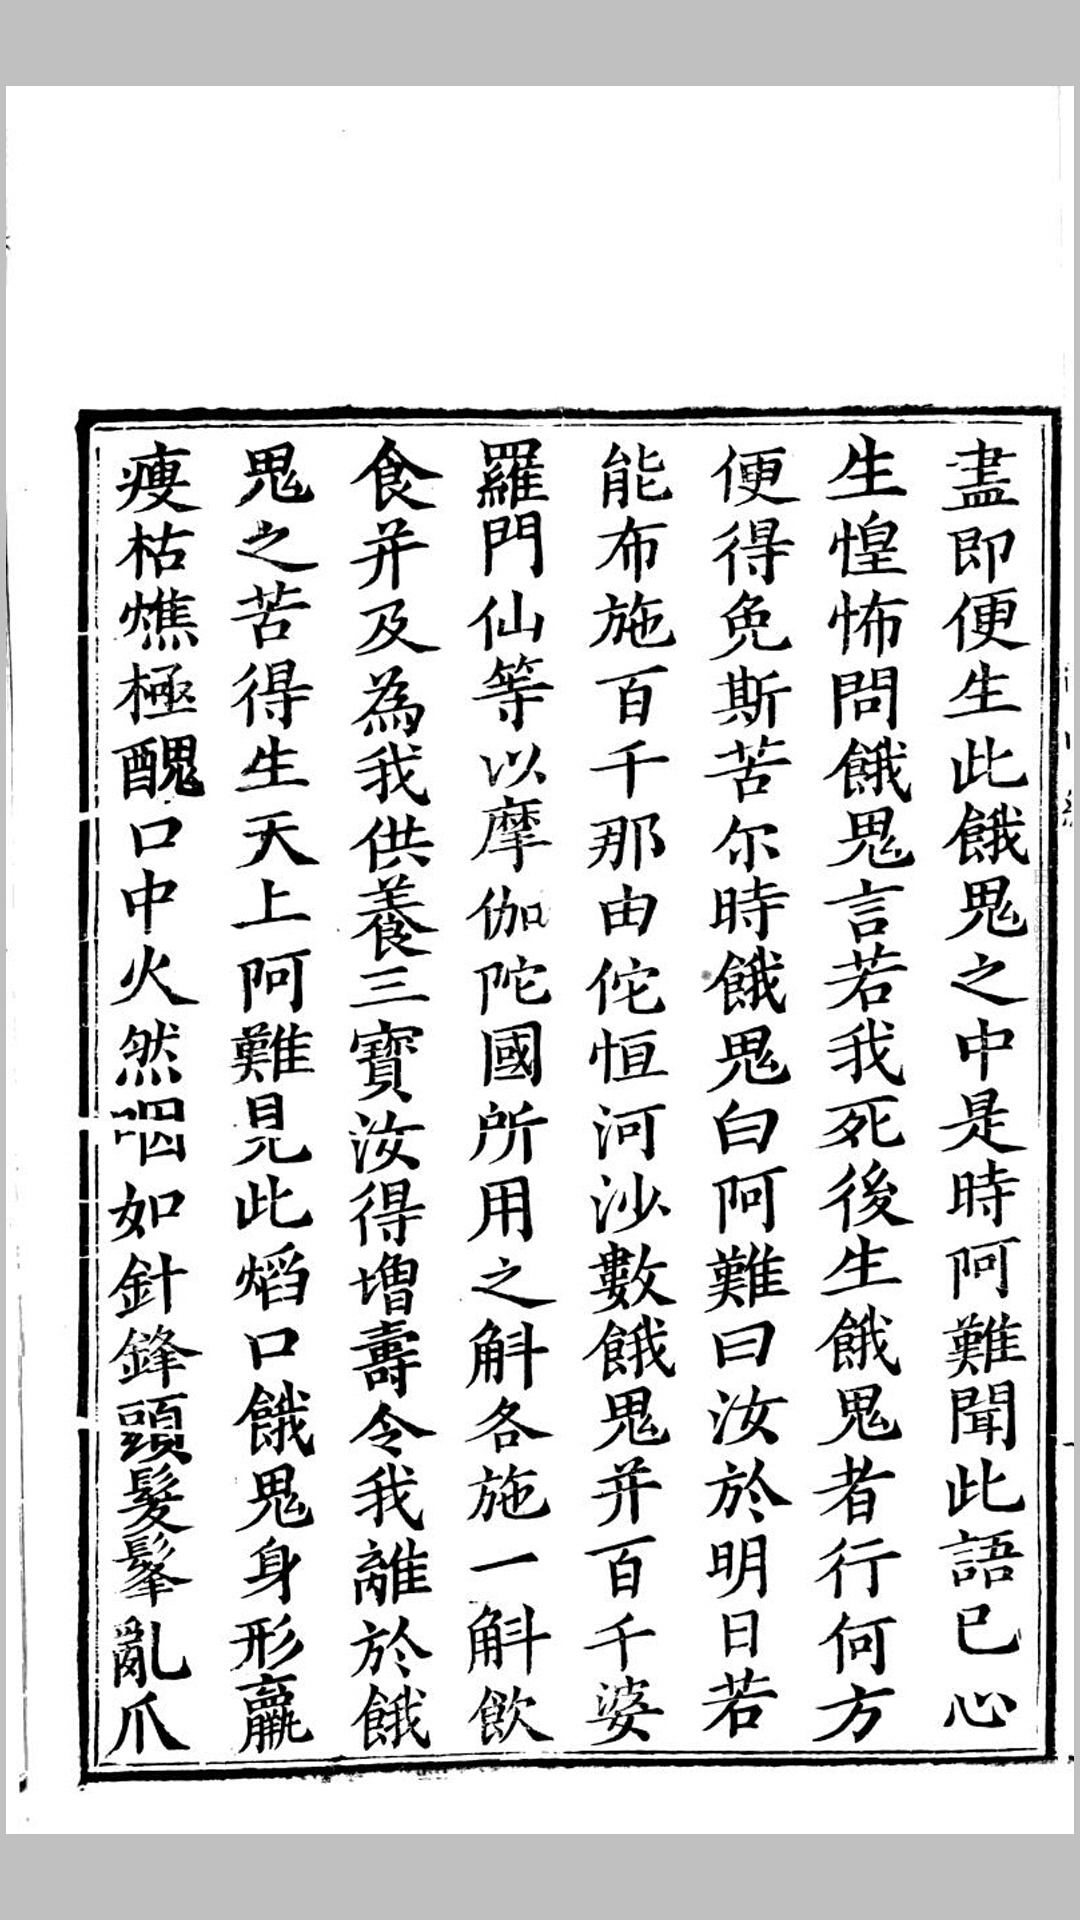 盡即便生此餓鬼之中是時阿難聞此語已心
生惶怖問餓鬼言若我死後生餓鬼者行何方
便得免斯苦尔時餓鬼白阿難曰汝於明日若
能布施百千那由佗恒河沙數餓鬼并百千婆
羅門仙等以摩伽陀國所用之斛各施一斛飲
食并及為我供養三寶汝得增壽令我離於餓
鬼之苦得生天上阿難見此焰口餓鬼身形羸
瘦枯燋極醜口中火然咽如針鋒頭髮髼亂爪